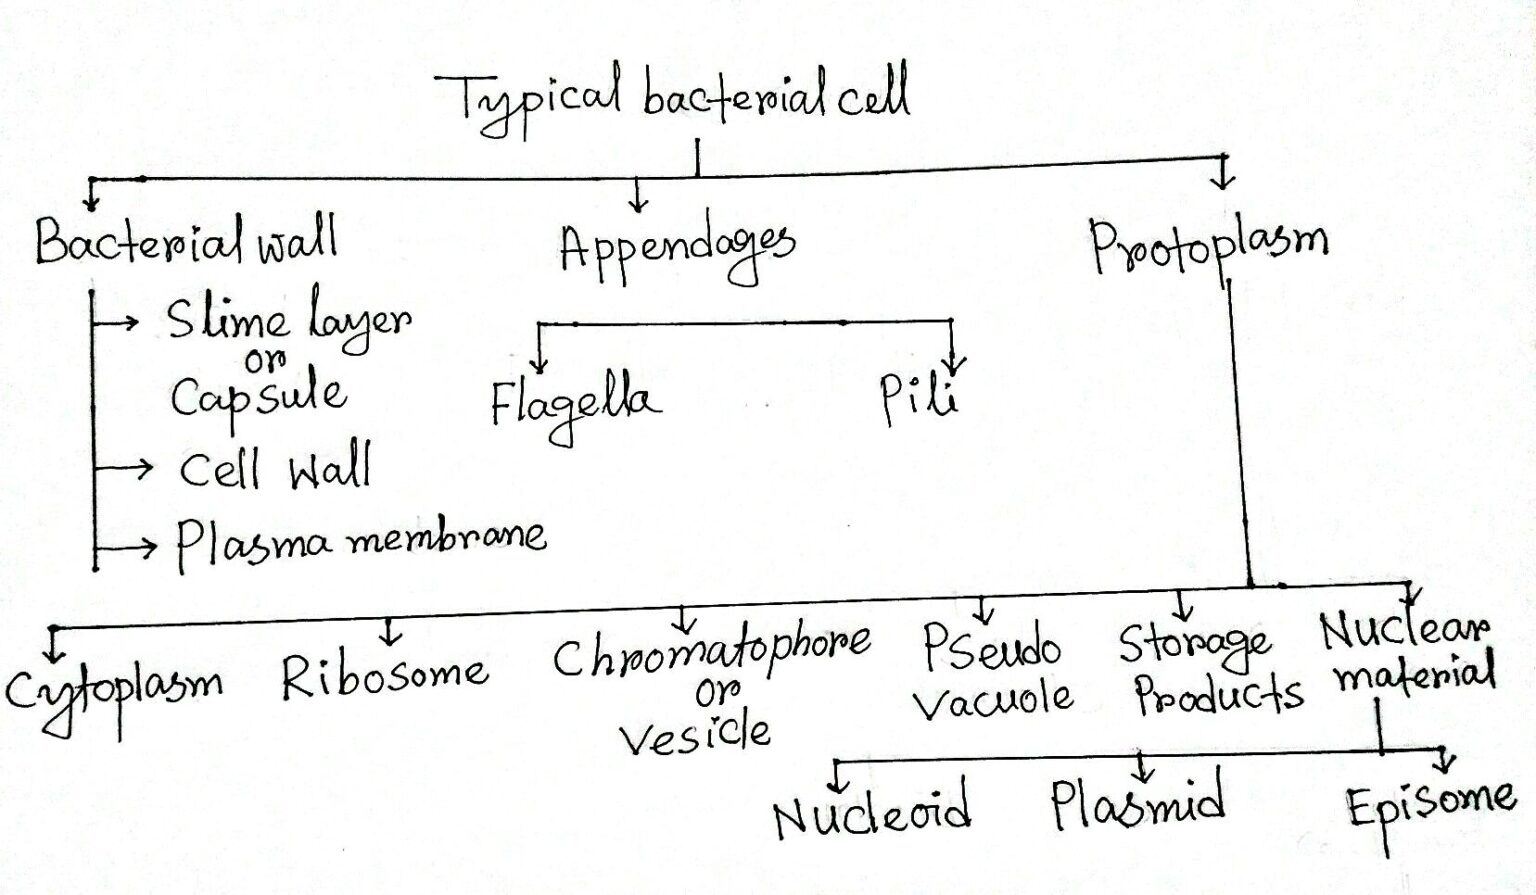 Typical bacterial cell
Bacterial wall
Appendages
Protoplasm
Slime layer
or
Capsule
Cell Wall
Plasma membrane
Flagella
Pili
Cytoplasm
Ribosome
Chromatophore
or
Vesicle
Pseudo
Vacuole
Storage
Products
Nuclear
material
Nucleoid
Plasmid
Episome